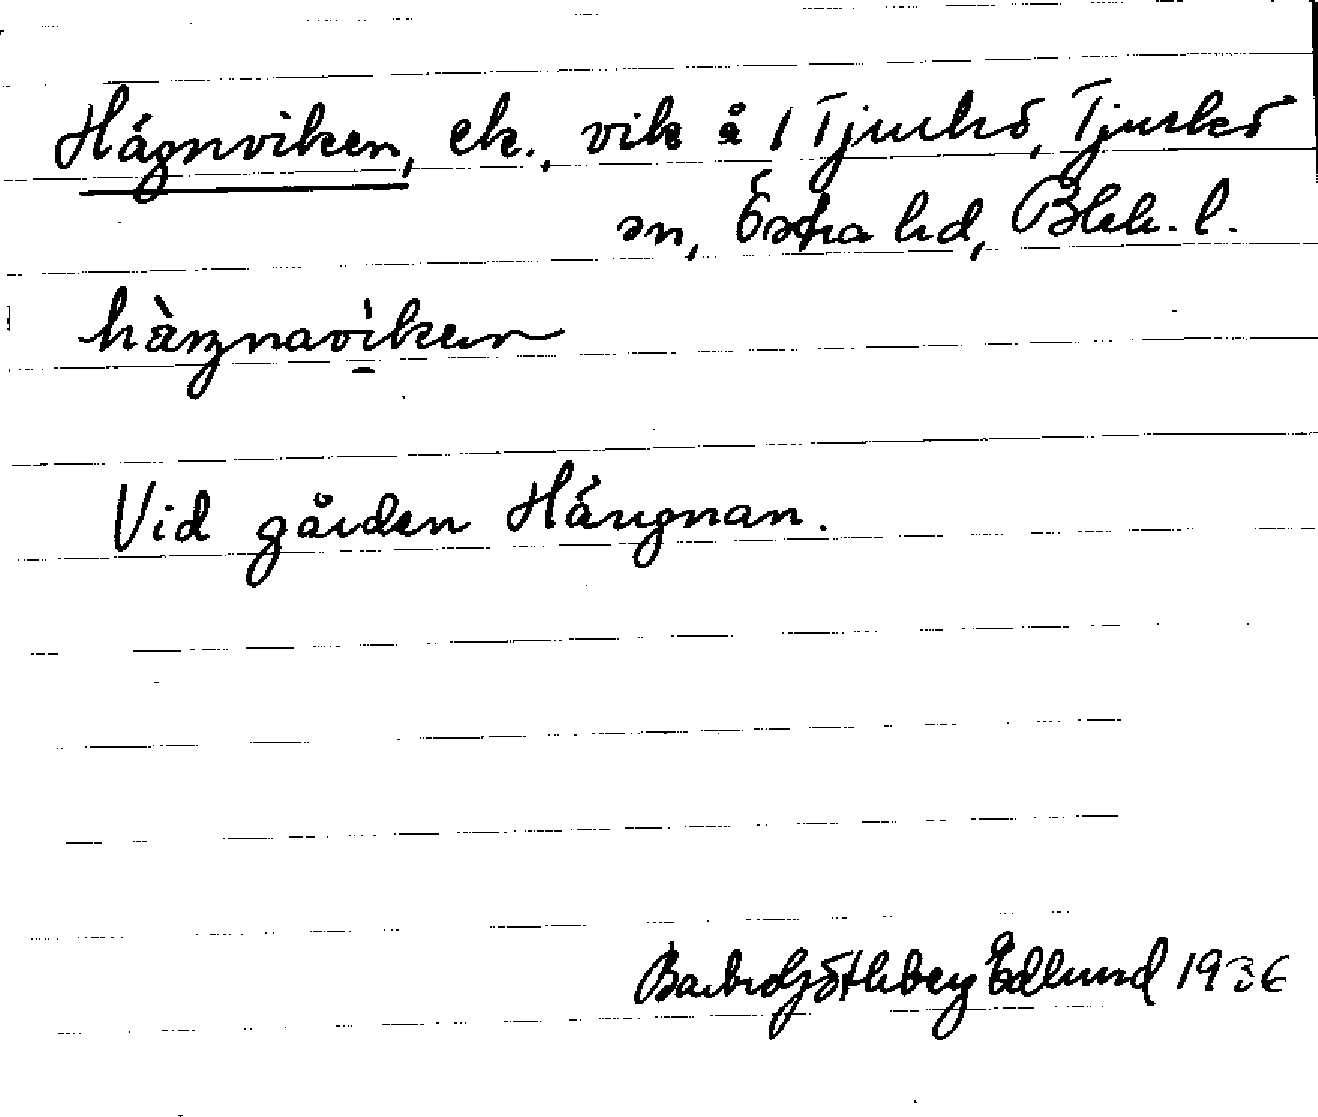 Hägnviken, ek., vik å 1 Tjurkö, Tjurkö
sn, Östra hd, Blek. l.
hàŋnavìken
Vid gården Hängnan.
Barbro Götlberg Edlund 1936